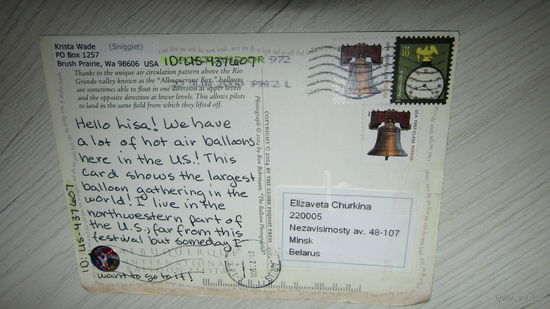 Krista Wade (Snigglet)
PO Box 1257
Brush Prairie, Wa 98606 USA
ID: US-437607
972
Thanks to the unique air circulation pattern above the Rio
Grande valley known as the "Albuquerque Box," balloons
are sometimes able to float in one direction at upper levels
and the opposite direction at lower levels. This allows pilots
to land in the same field from which they lifted off.
Hello Lisa! We have
a lot of hot air balloons
here in the US! This
card shows the largest
balloon gathering in the
world! I live in the
northwestern part of
the U.S., far from this
festival but someday I
want to go to it!
ID: US-437607
ALBUQUERQUE
INTERNATIONAL
COPYRIGHT © 2004 BY THE GLOBE PEQUOT PRESS
Photograph © 2004 by Ron Behrmann, "The Balloon Photographer"
USA FIRST-CLASS FOREVER
USA
10
Elizaveta Churkina
220005
Nezavisimosty av. 48-107
Minsk
Belarus